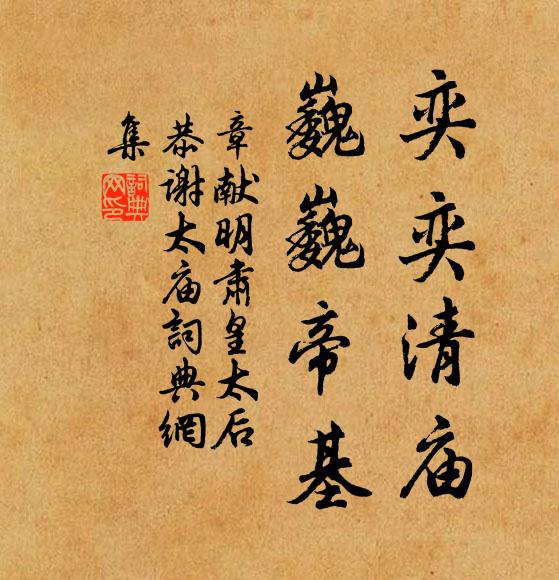 奕奕清庙
巍巍帝基
章献明肃皇太后
恭谢太庙词典網
集
詞典網印